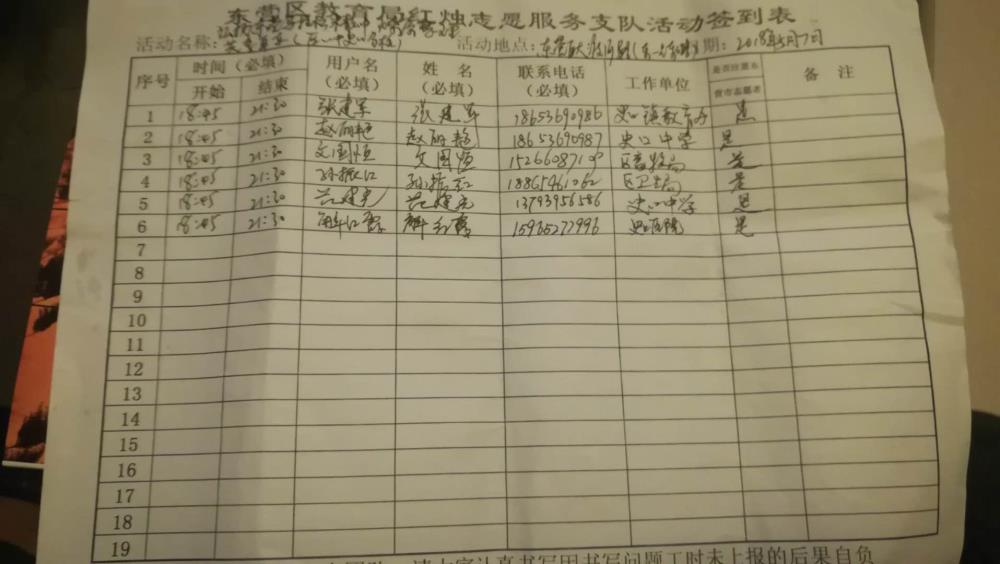 东营区教育局红烛志愿服务支队活动签到表
活动名称: 活动地点: 期: 2018年5月7日
序号 时间（必填） 用户名（必填） 姓名（必填） 联系电话（必填） 工作单位 是否注册东营市志愿者 备注
开始 结束
1 18:45 21:30 张建军 张建军 18653690986 史口镇教育办 是
2 18:45 21:30 赵丽艳 赵丽艳 18653690987 史口中学 是
3 18:45 21:30 文国恒 文国恒 152660871 是
4 18:45 21:30 孙振江 孙振江 18865461062 区卫生局 是
5 18:45 21:30 范建光 范建光 13793956586 史口中学 是
6 18:45 21:30 解红霞 解红霞 15965272996 史口医院 是
7
8
9
10
11
12
13
14
15
16
17
18
19
请大家认真书写因书写问题工时未上报的后果自负